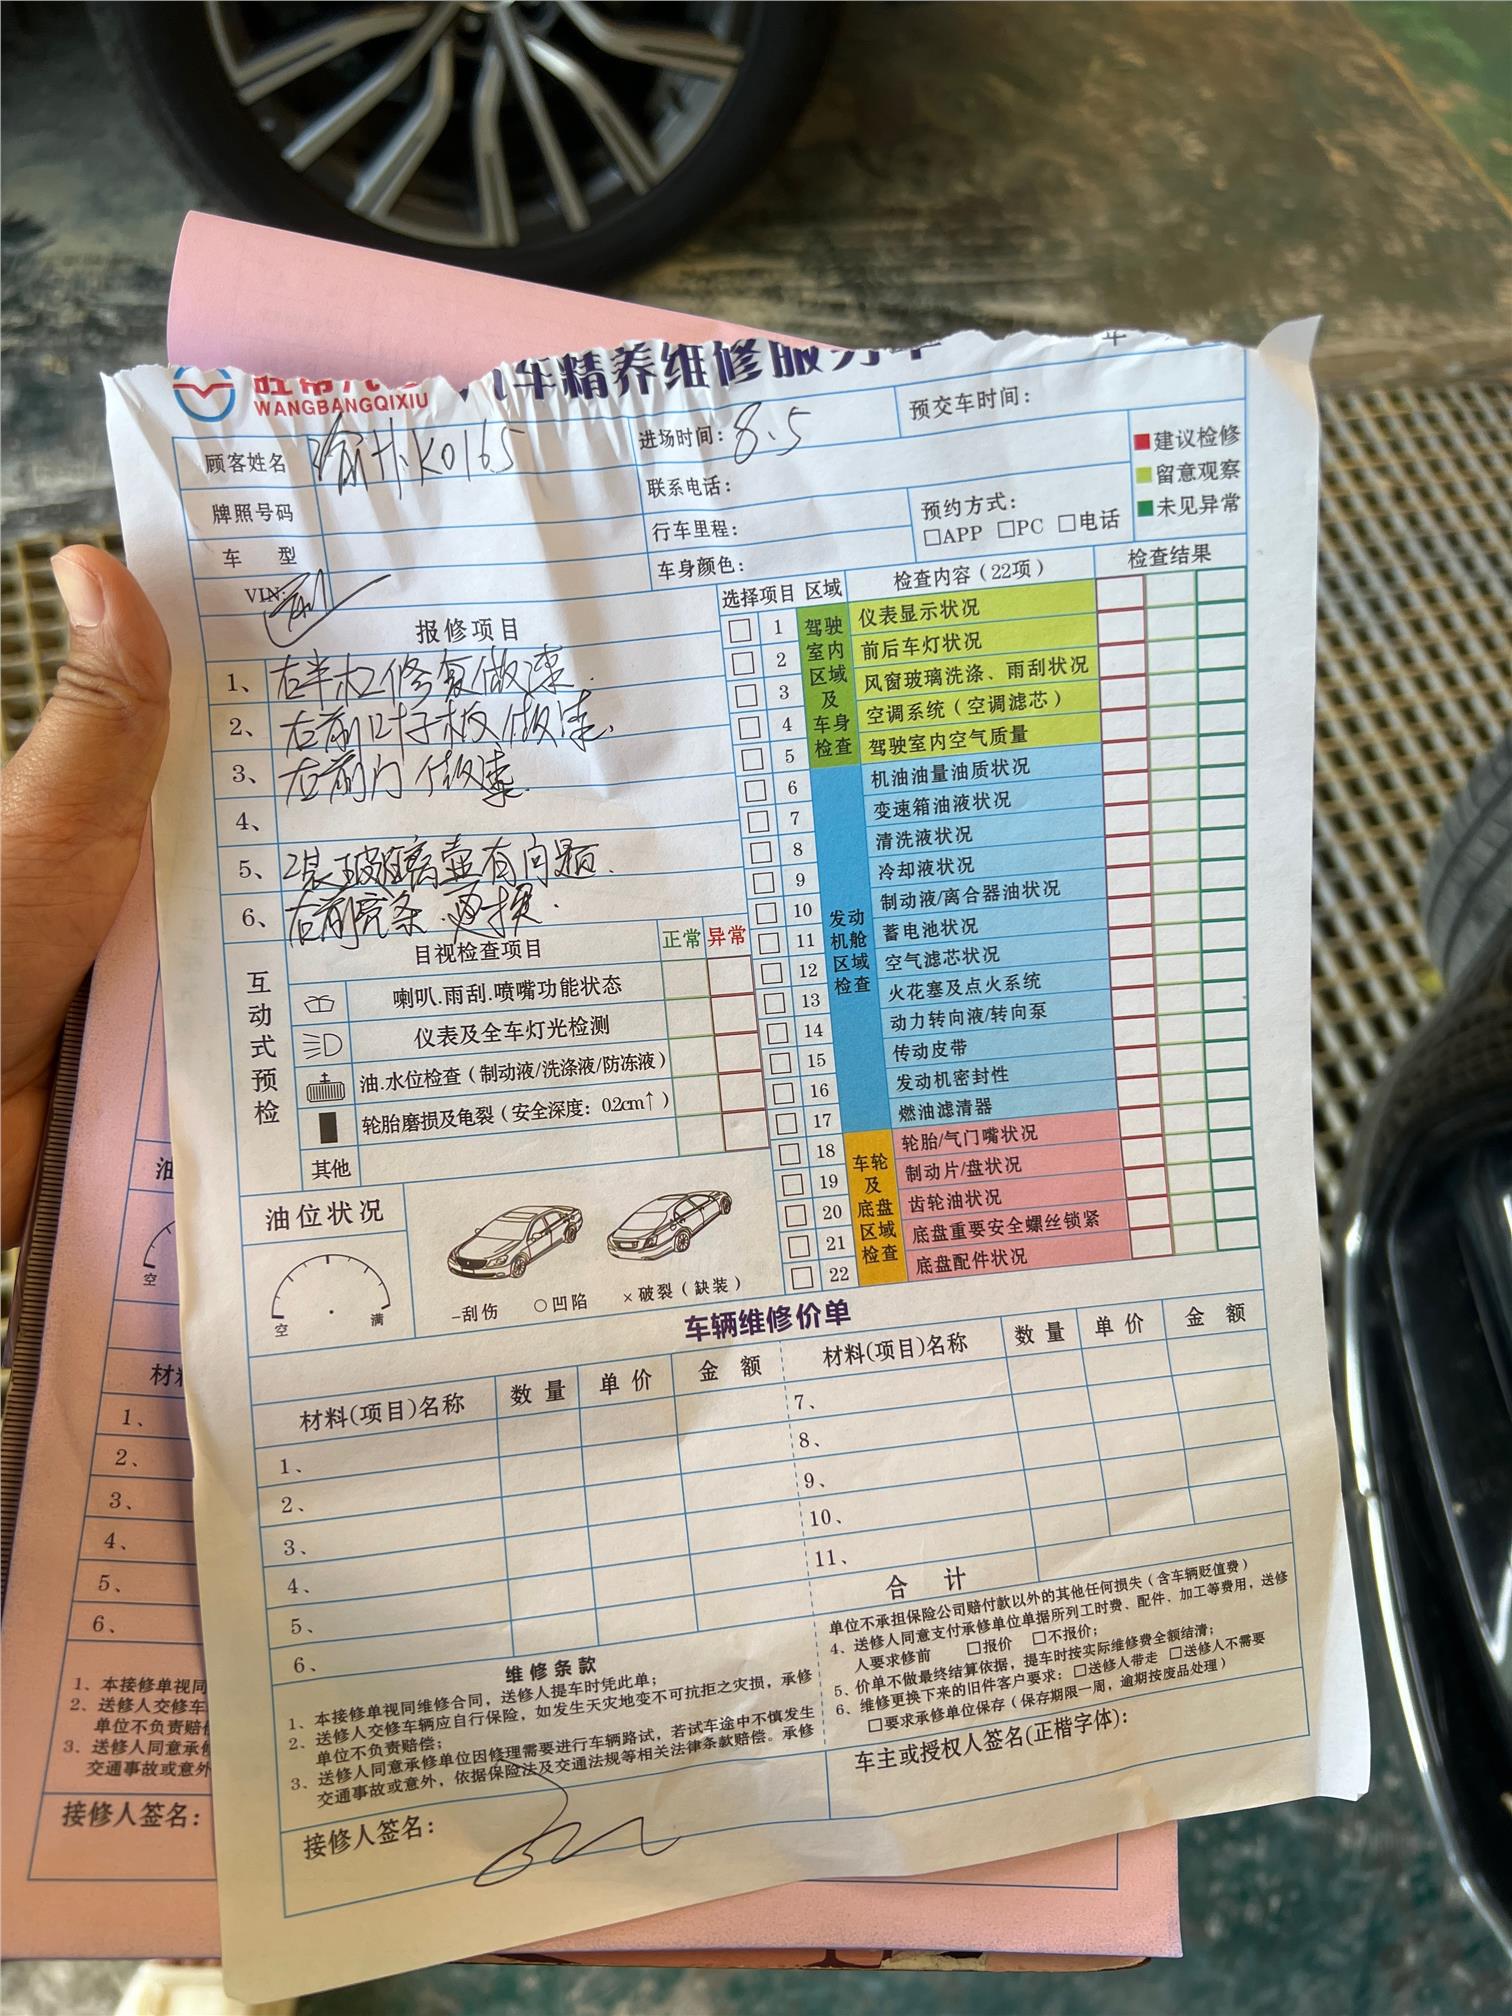 旺帮汽修 汽车精养维修服务单
WANGBANGQIXIU
顾客姓名
进场时间：8.5
预交车时间：
牌照号码
联系电话：
车 型
行车里程：
预约方式：
□APP □PC □电话
VIN:
车身颜色：
■建议检修
■留意观察
■未见异常
报修项目
1、右半杠修复做漆.
2、右前叶子板做漆.
3、右前门做漆.
4、
5、玻璃壶有问题.
6、右前亮条 再换.
互动式预检
目视检查项目 正常 异常
喇叭.雨刮.喷嘴功能状态
仪表及全车灯光检测
油.水位检查（制动液/洗涤液/防冻液）
轮胎磨损及龟裂（安全深度：0.2cm↑）
其他
油位状况
空 满
-刮伤 ○凹陷 ×破裂（缺装）
选择项目 区域 检查内容（22项） 检查结果
驾驶室内区域及车身检查
□ 1 仪表显示状况
□ 2 前后车灯状况
□ 3 风窗玻璃洗涤、雨刮状况
□ 4 空调系统（空调滤芯）
□ 5 驾驶室内空气质量
发动机舱区域检查
□ 6 机油油量油质状况
□ 7 变速箱油液状况
□ 8 清洗液状况
□ 9 冷却液状况
□ 10 制动液/离合器油状况
□ 11 蓄电池状况
□ 12 空气滤芯状况
□ 13 火花塞及点火系统
□ 14 动力转向液/转向泵
□ 15 传动皮带
□ 16 发动机密封性
□ 17 燃油滤清器
车轮及底盘区域检查
□ 18 轮胎/气门嘴状况
□ 19 制动片/盘状况
□ 20 齿轮油状况
□ 21 底盘重要安全螺丝锁紧
□ 22 底盘配件状况
车辆维修价单
材料(项目)名称 数 量 单 价 金 额
1、
2、
3、
4、
5、
6、
材料(项目)名称 数 量 单 价 金 额
7、
8、
9、
10、
11、
合 计
维修条款
1、本接修单视同维修合同，送修人提车时凭此单；
2、送修人交修车辆应自行保险，如发生天灾地变不可抗拒之灾损，承修
单位不负责赔偿；
3、送修人同意承修单位因修理需要进行车辆路试，若试车途中不慎发生
交通事故或意外，依据保险法及交通法规等相关法律条款赔偿。承修
单位不承担保险公司赔付款以外的其他任何损失（含车辆贬值费）
4、送修人同意支付承修单位单据所列工时费、配件、加工等费用，送修
人要求修前 □报价 □不报价；
5、价单不做最终结算依据，提车时按实际维修费全额结清；
6、维修更换下来的旧件客户要求：□送修人带走 □送修人不需要
□要求承修单位保存（保存期限一周，逾期按废品处理）
接修人签名：
车主或授权人签名(正楷字体)：
油
空
材料
1、
2、
3、
4、
5、
6、
1、本接修单视同
2、送修人交修车
单位不负责赔偿
3、送修人同意承修
交通事故或意外
接修人签名：